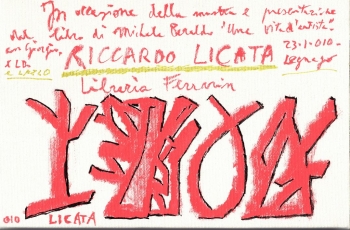 In occasione della mostra e presentazione
del libro di Michele Beraldo "Una vita d'artista"
con Giorgio, 23-1-010-
e LDB RICCARDO LICATA Legnago
e LARGO
Libreria Ferrarin
010 LICATA